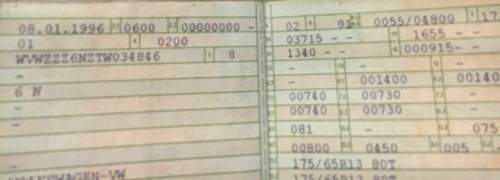 08.01.1996 0600 00000000 -
01 0200
WVWZZZ6NZTW034846 8
-
-
6 N
-
-
-
VOLKSWAGEN-VW
02 01 0055/04800
03715 -- 1655 --
1340 -- 000915--
- - -
- 001400 00140
00740 00730 -
00740 00730 -
081 - 075
00800 0450 005
175/65R13 80T
175/65R13 80T